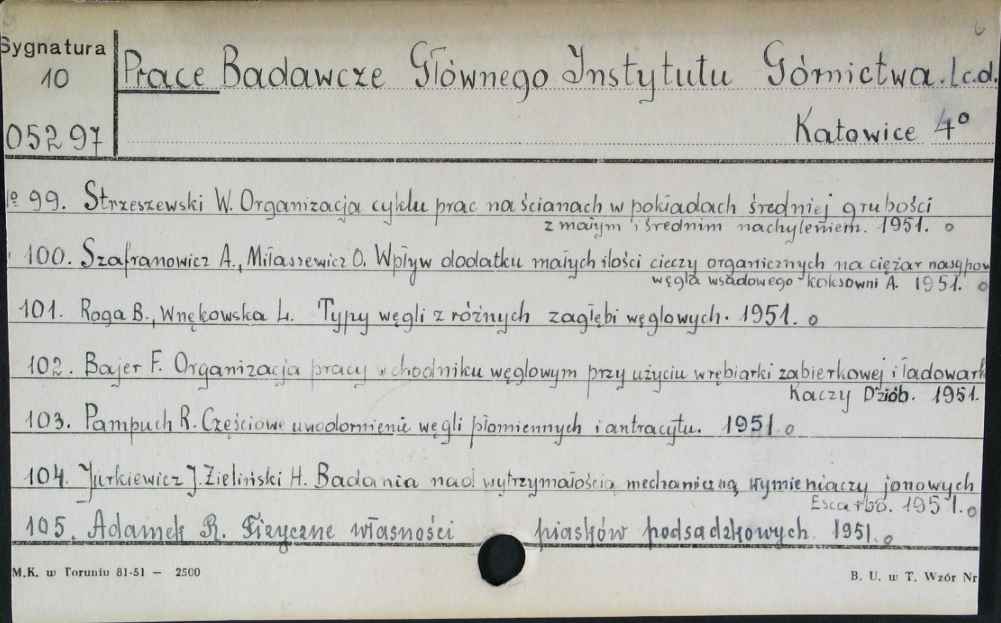 Sygnatura
10
Prace Badawcze Głównego Instytutu Górnictwa. /c.d.
05297
Katowice 4°
No 99. Strzeszewski W. Organizacja cyklu prac na ścianach w pokładach średniej grubości
z małym i średnim nachyleniem. 1951. o
100. Szafranowicz A., Miłaszewicz O. Wpływ dodatku małych ilości cieczy organicznych na ciężar nasypow
węgla wsadowego koksowni A. 1951. o
101. Roga B., Wnękowska L. Typy węgli z różnych zagłębi węglowych. 1951. o
102. Bajer F. Organizacja pracy w chodniku węglowym przy użyciu wrębiarki zabierkowej i ładowark
Kaczy Dziób. 1951.
103. Pampuch R. Częściowe uwodornienie węgli płomiennych i antracytu. 1951. o
104. Jurkiewicz J. Zieliński H. Badania nad wytrzymałością mechaniczną wymieniaczy jonowych
Escarbo. 1951. o
105. Adamek R. Fizyczne własności piasków podsadzkowych. 1951. o
M.K. w Toruniu 81-51 — 2500
B. U. w T. Wzór Nr